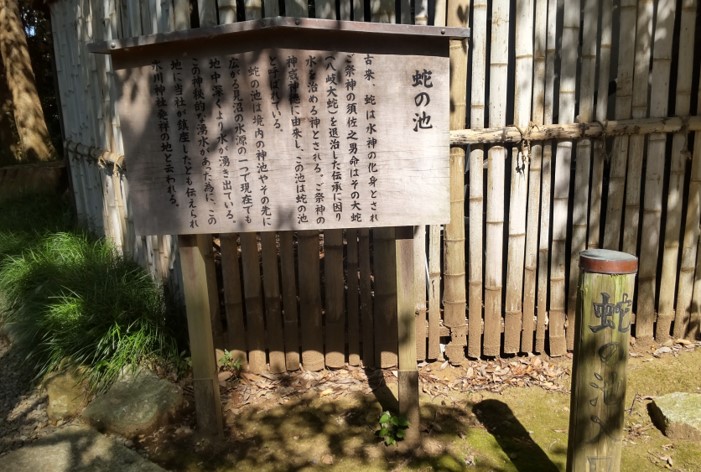 蛇の池
古来、蛇は水神の化身とされ
ご祭神の須佐之男命はその大蛇
(八岐大蛇)を退治した伝承に因り
水を治める神とされる。ご祭神の
神威神徳に由来し、この池は蛇の池
と呼ばれている。
蛇の池は境内の神池やその先に
広がる見沼の水源の一つで現在でも
地中深くより水が湧き出ている。
この神秘的な湧水があった為に、この
地に当社が鎮座したとも伝えられ
氷川神社発祥の地と云われる。
蛇
の